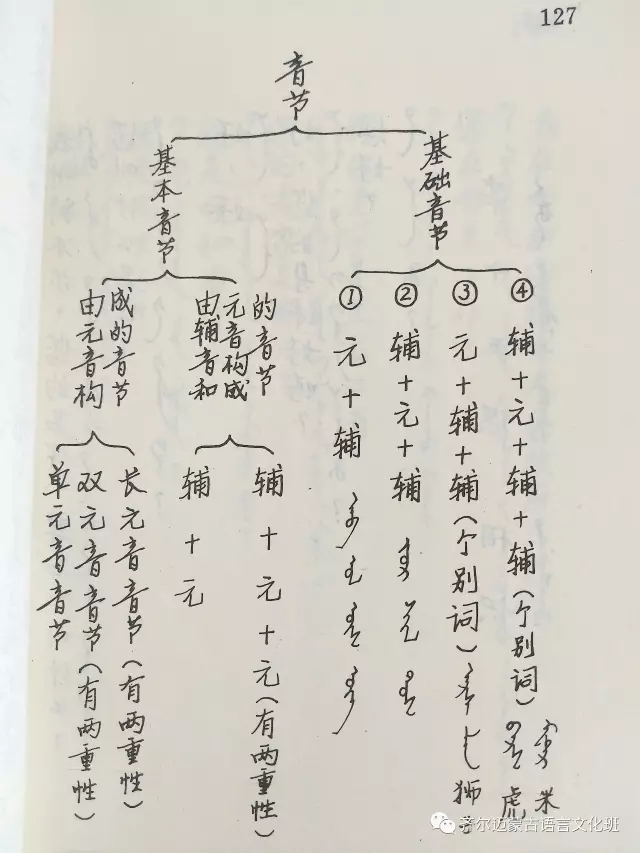 127
音节
基本音节
基础音节
由元音构
成的音节
由辅音和
元音构成
的音节
单元音音节
双元音音节(有两重性)
长元音音节(有两重性)
辅+元
辅+元+元(有两重性)
① 元+辅
② 辅+元+辅
③ 元+辅+辅(个别词)
狮子
④ 辅+元+辅+辅(个别词)
虎
米
齐尔迈蒙古语言文化班